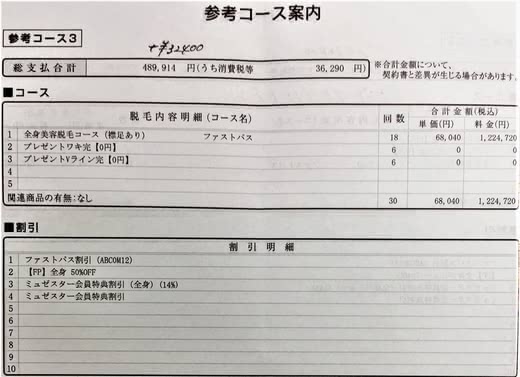 参考コース案内
参考コース3
+¥32400
総支払合計 489,914 円(うち消費税等 36,290 円)
※合計金額について、
契約書と差異が生じる場合があります。
■コース
脱毛内容明細(コース名) 回数 合計金額(税込)
単価(円) 料金(円)
1 全身美容脱毛コース(襟足あり) ファストパス 18 68,040 1,224,720
2 プレゼントワキ完【0円】 6 0 0
3 プレゼントVライン完【0円】 6 0 0
4
5
関連商品の有無:なし 30 68,040 1,224,720
■割引
割引明細
1 ファストパス割引(ABCOM12)
2 【FP】全身 50%OFF
3 ミュゼスター会員特典割引(全身)(14%)
4 ミュゼスター会員特典割引
5
6
7
8
9
10